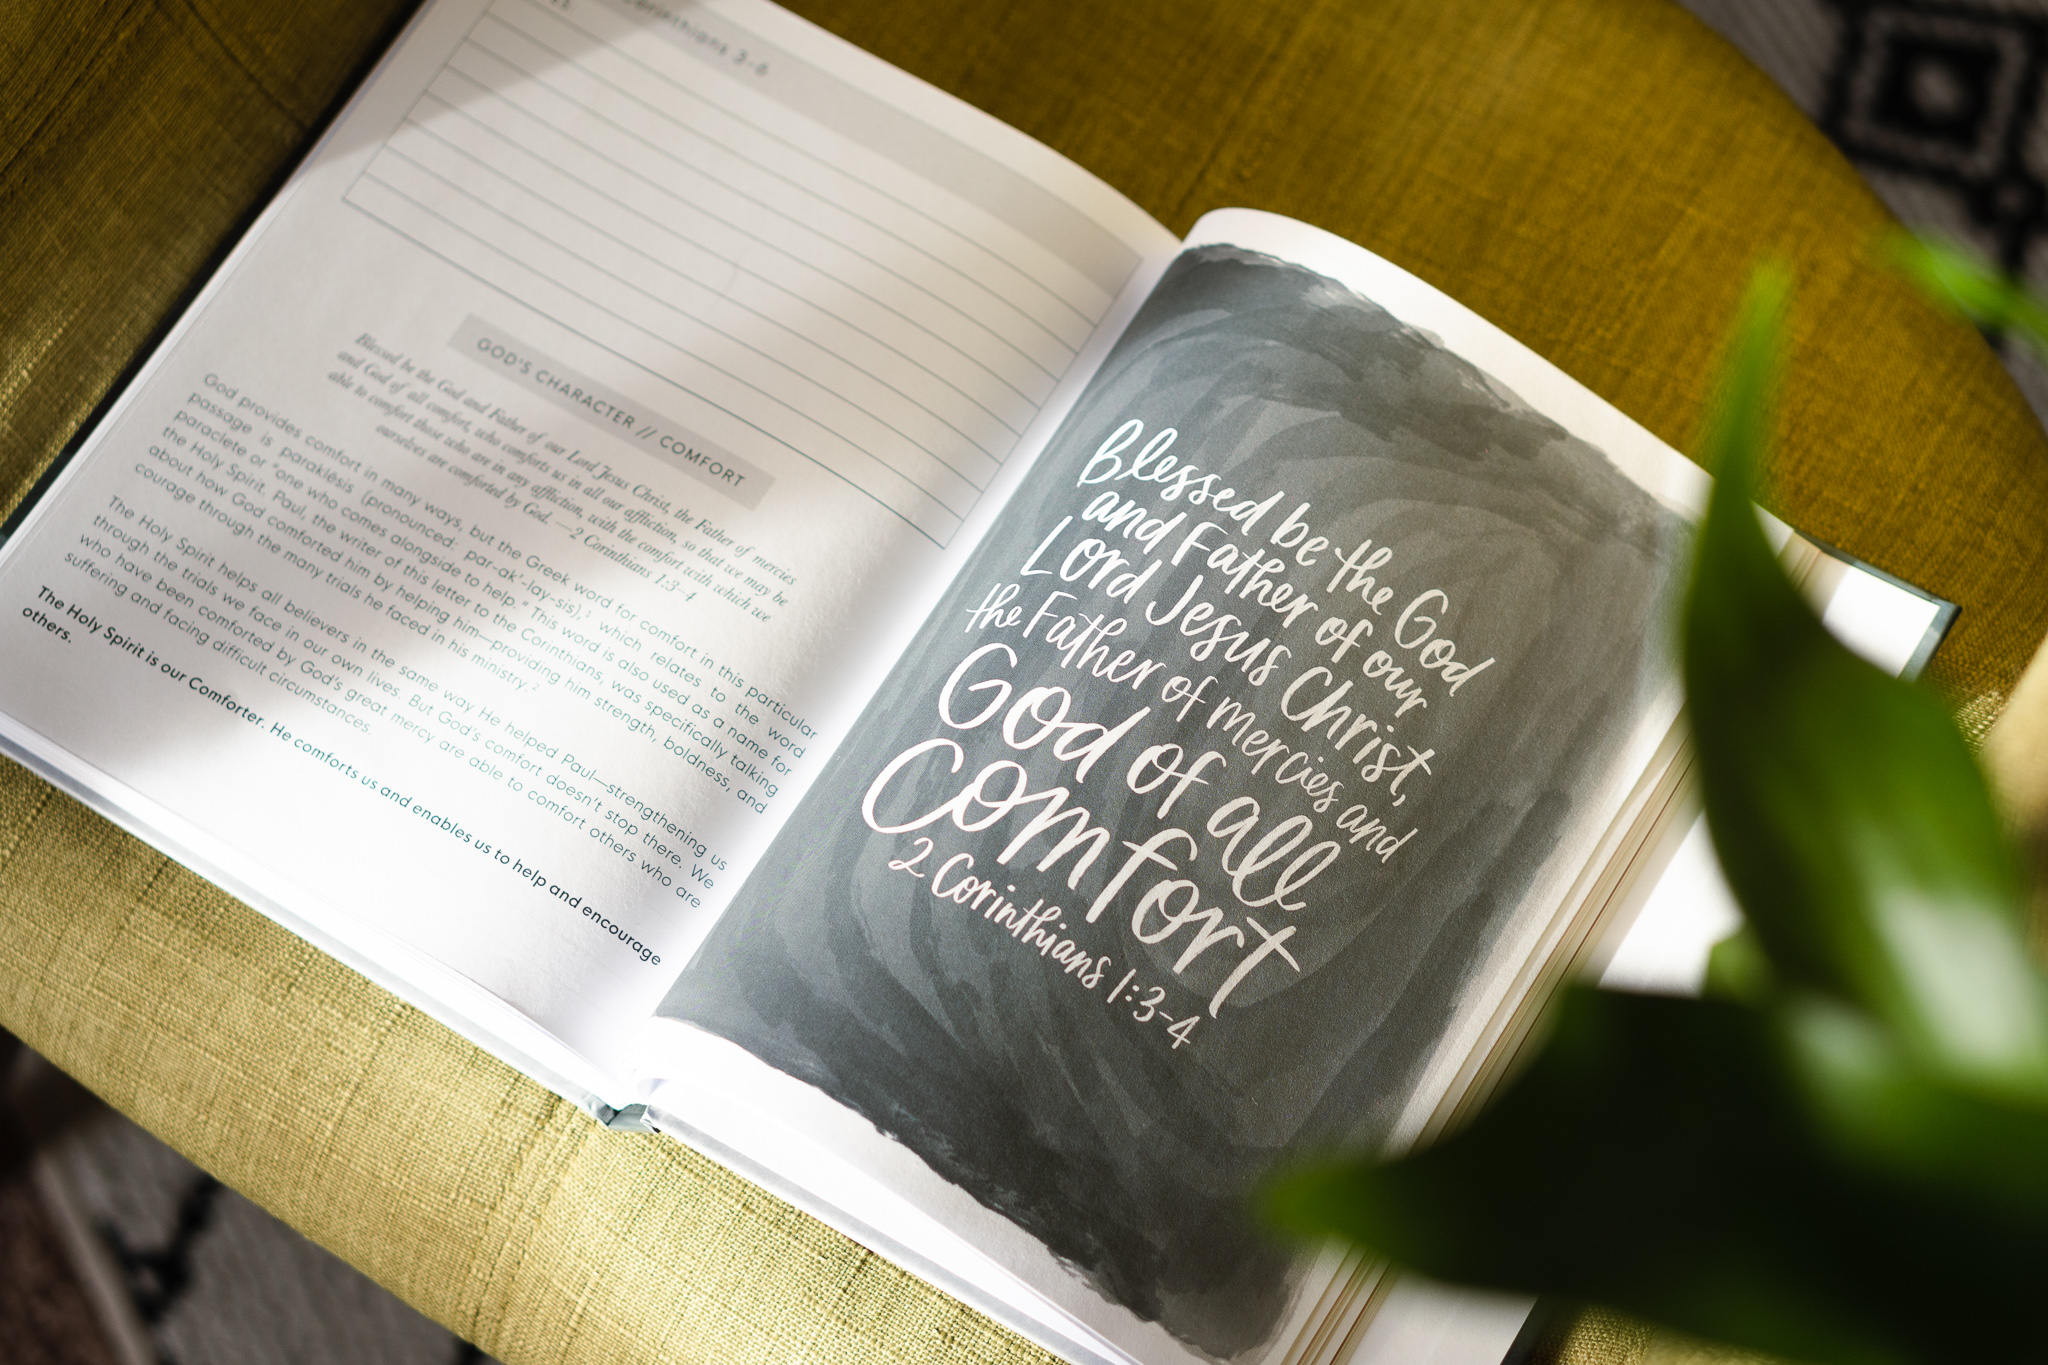 Corinthians 3-6
GOD'S CHARACTER // COMFORT
Blessed be the God and Father of our Lord Jesus Christ, the Father of mercies
and God of all comfort, who comforts us in all our affliction, so that we may be
able to comfort those who are in any affliction, with the comfort with which we
ourselves are comforted by God. —2 Corinthians 1:3–4
God provides comfort in many ways, but the Greek word for comfort in this particular
passage is paraklēsis (pronounced: par-ak'-lay-sis),¹ which relates to the word
paraclete or "one who comes alongside to help." This word is also used as a name for
the Holy Spirit. Paul, the writer of this letter to the Corinthians, was specifically talking
about how God comforted him by helping him—providing him strength, boldness, and
courage through the many trials he faced in his ministry.²
The Holy Spirit helps all believers in the same way He helped Paul—strengthening us
through the trials we face in our own lives. But God's comfort doesn't stop there. We
who have been comforted by God's great mercy are able to comfort others who are
suffering and facing difficult circumstances.
The Holy Spirit is our Comforter. He comforts us and enables us to help and encourage
others.
Blessed be the God
and Father of our
Lord Jesus Christ,
the Father of mercies and
God of all
Comfort
2 Corinthians 1:3-4